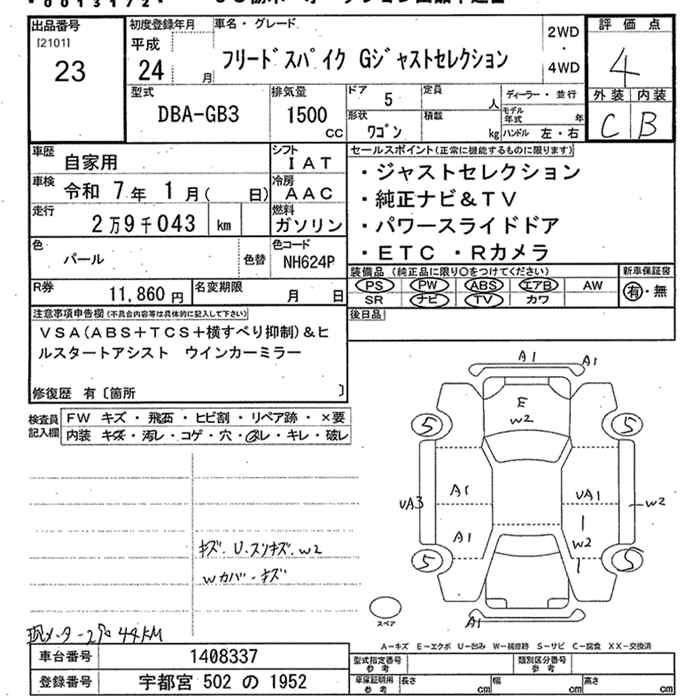 00131172
出品番号
[2101]
23
初度登録年月
平成
24
月
車名・グレード
フリードスパイク Gジャストセレクション
2WD
・
4WD
評価点
4
外装
内装
C
B
型式
DBA-GB3
排気量
1500
CC
ドア
5
定員
人
ディーラー・並行
形状
ワゴン
積載
kg
モデル年式
年
ハンドル 左・右
車歴
自家用
シフト
IAT
車検
令和 7年 1月( 日)
冷房
AAC
走行
2万9千043
km
燃料
ガソリン
色
パール
色替
色コード
NH624P
R券
11,860 円
名変期限
月 日
セールスポイント(正常に機能するものに限ります)
・ジャストセレクション
・純正ナビ&TV
・パワースライドドア
・ETC ・Rカメラ
装備品 (純正品に限り〇をつけてください)
新車保証書
PS PW ABS エアB AW
SR ナビ TV カワ
有・無
後日品
注意事項申告欄(不具合内容等は具体的に記入して下さい)
VSA(ABS+TCS+横すべり抑制)&ヒ
ルスタートアシスト ウインカーミラー
修復歴 有〔箇所 〕
検査員
記入欄
FW キズ・飛石・ヒビ割・リペア跡・×要
内装 キズ・汚レ・コゲ・穴・スレ・キレ・破レ
A1
A1
E
W2
5
5
UA3
A1
UA1
W2
A1
W2
5
5
A1
スペア
キズ. U.スリキズ. W2
Wカバ-キズ
現メーター2万9 44KM
A-キズ E-エクボ U-凹み W-補修跡 S-サビ C-腐食 XX-交換済
車台番号
1408337
登録番号
宇都宮 502 の 1952
型式指定番号
参考
類別区分番号
参考
車庫証明用
参考
長さ
cm
幅
cm
高さ
cm